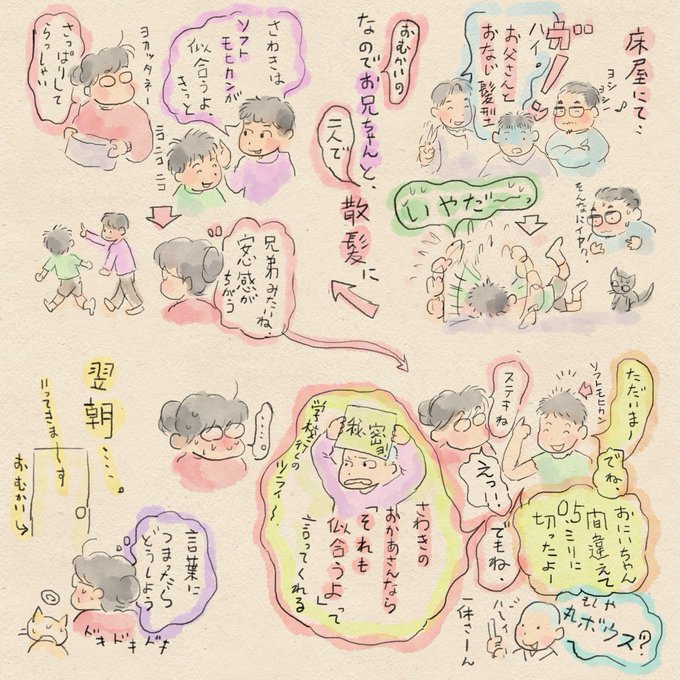 床屋にて、
ガーン
ハイ。
お父さんと
おなじ髪型
ヨシヨシ♪
いやだ〜〜っ
そんなにイヤ!?
おむかいの
なのでお兄ちゃんと、
二人で
散髪に
さわきは
ソフト
モヒカンが
似合うよ、
きっと
ニコニコニコ
ヨカッタネー
さっぱりして
らっしゃい
兄弟みたいね、
安心感が
ちがう
ただいまー
ソフトモヒカン
ステキね
でね
おにいちゃん
間違えて
0.5ミリに
切ったよー
えっ!!
もしや
丸ボウズ?
ハーイ
一休さーん
でもね、
さわきの
おかあさんなら
「それも
似合うよ」って
言ってくれる
秘密
学校行くの
ツライ〜
・・・。
翌朝・・・。
いってきまーす
おむかい→
言葉に
つまったら
どうしよう
ドキドキドキ